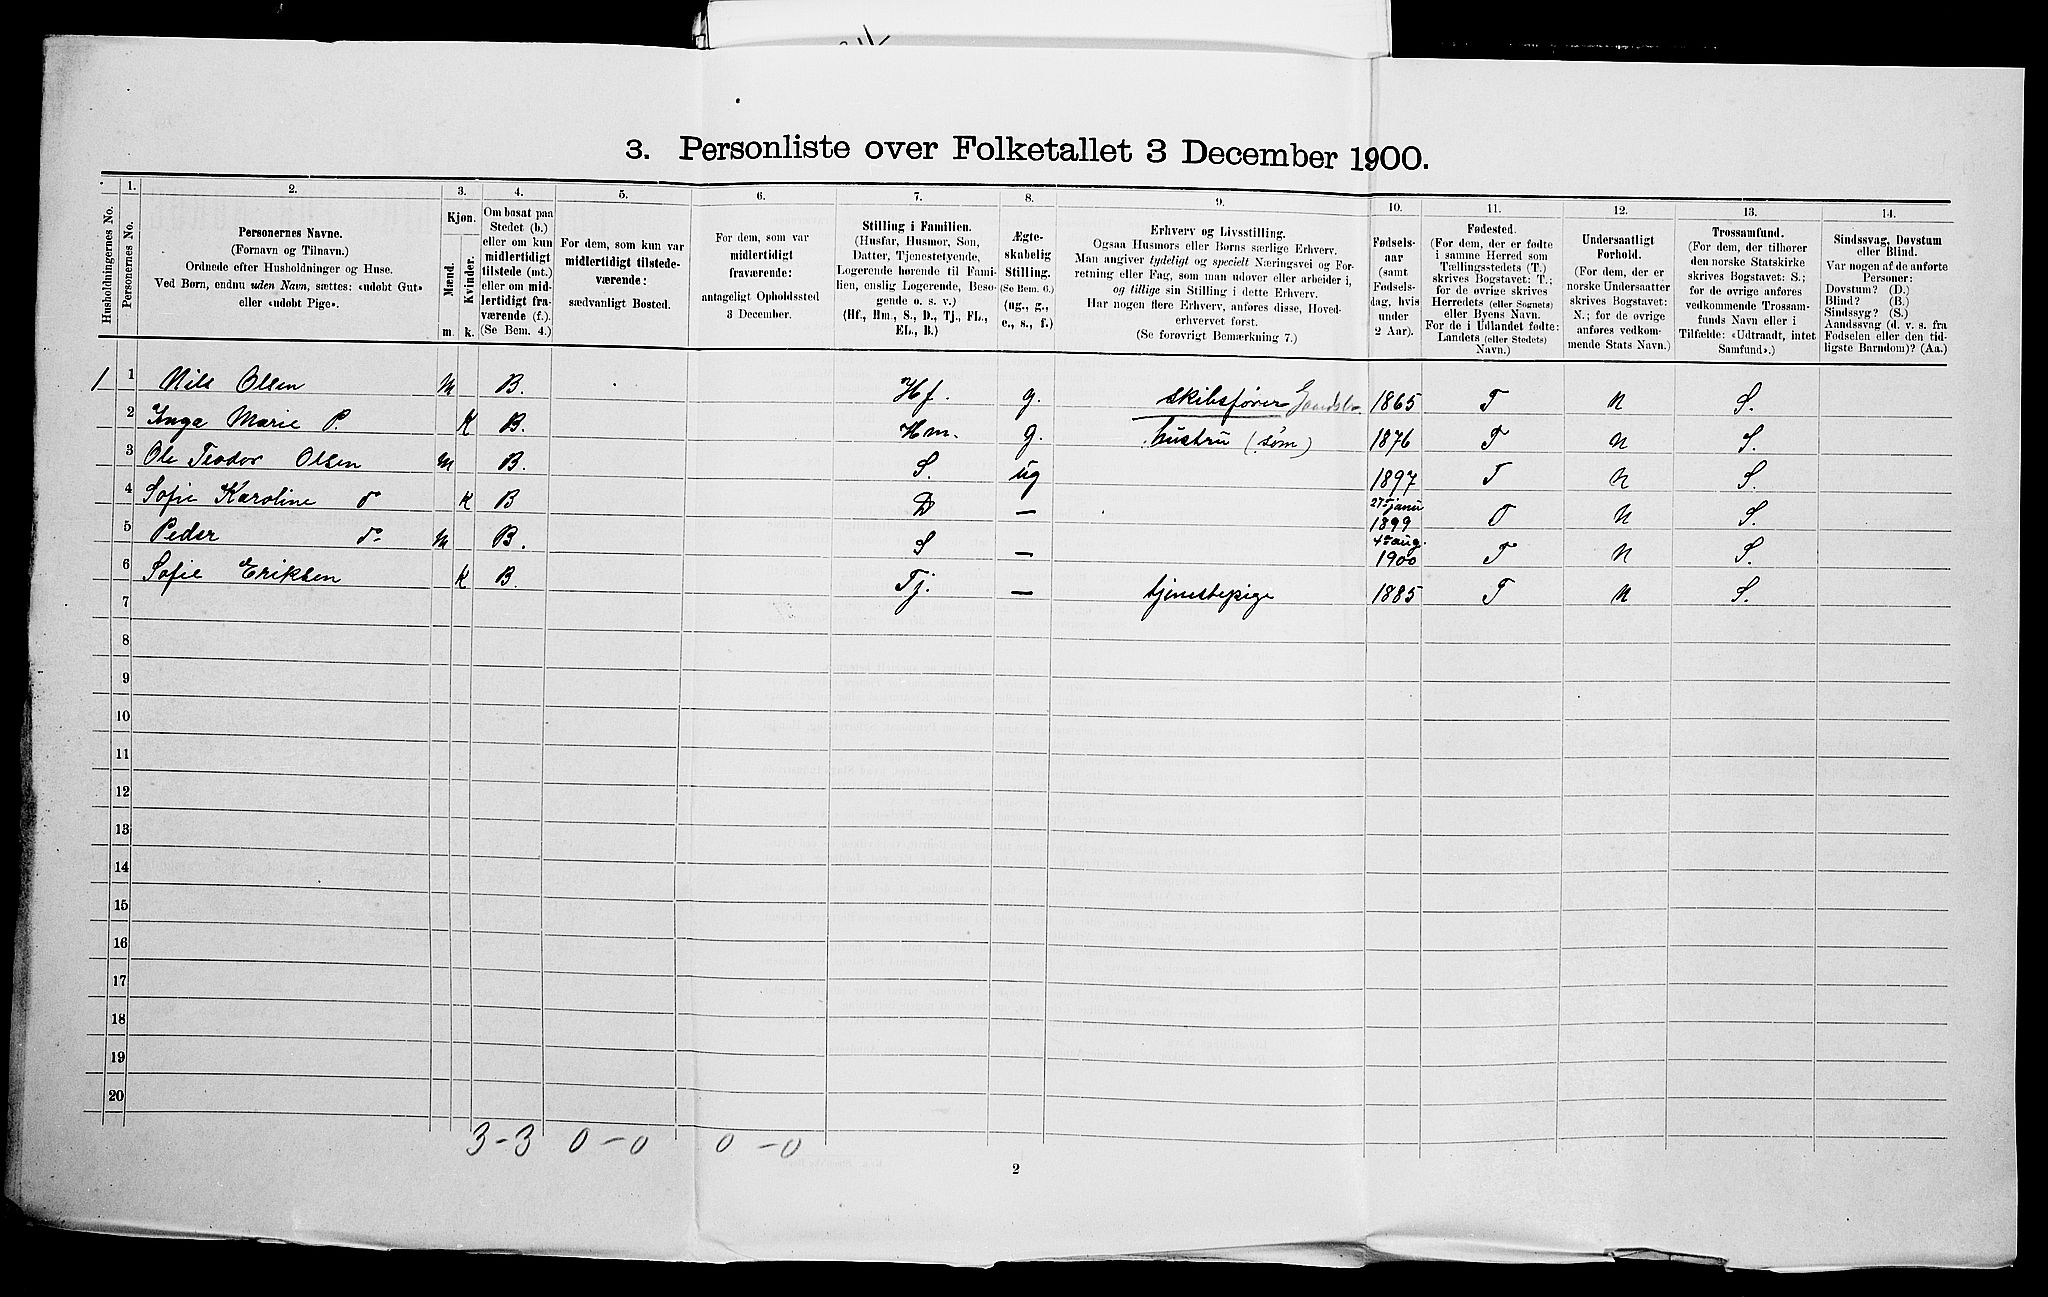 3. Personliste over Folketallet 3 December 1900.
Husholdningernes No.
1.
Personernes No.
2.
Personernes Navne.
(Fornavn og Tilnavn.)
Ordnede efter Husholdninger og Huse.
Ved Børn, endnu uden Navn, sættes: «udøbt Gut»
eller «udøbt Pige».
3.
Kjøn.
Mænd.
Kvinder.
m.
k.
4.
Om bosat paa
Stedet (b.)
eller om kun
midlertidigt
tilstede (mt.)
eller om mid-
lertidigt fra-
værende (f.).
(Se Bem. 4.)
5.
For dem, som kun var
midlertidigt tilstede-
værende:
sædvanligt Bosted.
6.
For dem, som var
midlertidigt
fraværende:
antageligt Opholdssted
3 December.
7.
Stilling i Familien.
(Husfar, Husmor, Søn,
Datter, Tjenestetyende,
Logerende hørende til Fami-
lien, enslig Logerende, Besø-
gende o. s. v.)
(Hf., Hm., S., D., Tj., FL.,
EL., B.)
8.
Ægte-
skabelig
Stilling.
(Se Bem. 6.)
(ug., g.,
e., s., f.)
9.
Erhverv og Livsstilling.
Ogsaa Husmors eller Børns særlige Erhverv.
Man angiver tydeligt og specielt Næringsvei og For-
retning eller Fag, som man udøver eller arbeider i,
og tillige sin Stilling i dette Erhverv.
Har nogen flere Erhverv, anføres disse, Hoved-
erhvervet først.
(Se forøvrigt Bemærkning 7.)
10.
Fødsels-
aar
(samt
Fødsels-
dag, hvis
under
2 Aar).
11.
Fødested.
(For dem, der er fødte
i samme Herred som
Tællingsstedets (T.)
skrives Bogstavet: T.;
for de øvrige skrives
Herredets (eller Sognets)
eller Byens Navn.
For de i Udlandet fødte:
Landets (eller Stedets)
Navn.)
12.
Undersaatligt
Forhold.
(For dem, der er
norske Undersaatter
skrives Bogstavet:
N.; for de øvrige
anføres vedkom-
mende Stats Navn.)
13.
Trossamfund.
(For dem, der tilhører
den norske Statskirke
skrives Bogstavet: S.;
for de øvrige anføres
vedkommende Trossam-
funds Navn eller i
Tilfælde: «Udtraadt, intet
Samfund».)
14.
Sindssvag, Døvstum
eller Blind.
Var nogen af de anførte
Personer:
Døvstum? (D.)
Blind? (B.)
Sindssyg? (S.)
Aandssvag (d. v. s. fra
Fødselen eller den tid-
ligste Barndom)? (Aa.)
1 1 Nils Olsen M B. Hf. g. skibsfører 1865 T N S.
2 Inga Marie P. K B. Hm. g. hustru (søm) 1876 T N S.
3 Ole Teodor Olsen M B. S. ug 1897 T N S.
4 Sofie Karoline do K B D — 27 janu 1899 T N S.
5 Peder do M B. S — 4de aug. 1900 T N S.
6 Sofie Eriksen K B. Tj. — tjenestepige 1885 T N S.
7
8
9
10
11
12
13
14
15
16
17
18
19
20
3-3 0-0 0-0
2